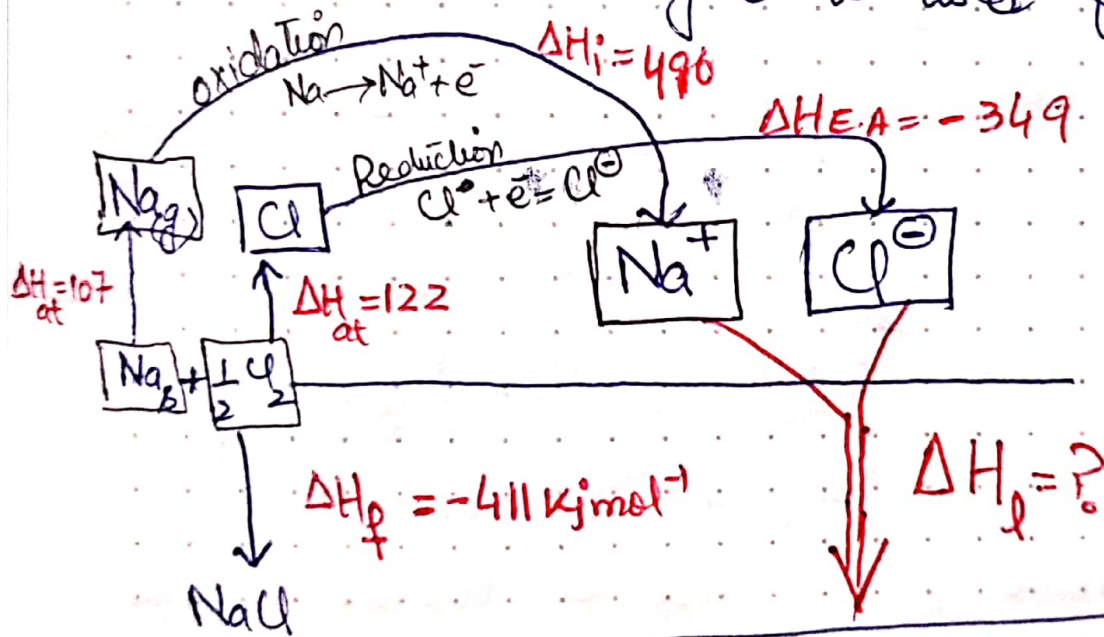 oxidation
Na → Na⁺ + e⁻
ΔHᵢ = 496
ΔH E.A = - 349
Reduction
Cl• + e⁻ = Cl⊖
Na(g)
Cl
Na⁺
Cl⊖
ΔH at = 107
ΔH at = 122
Na s + 1/2 Cl₂
ΔH f = -411 kjmol⁻¹
ΔH l = ?
NaCl